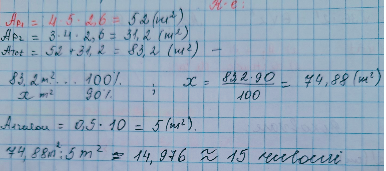 Ap₁ = 4·5·2,6 = 52 (m²)
Ap₂ = 3·4·2,6 = 31,2 (m²)
Atot = 52 + 31,2 = 83,2 (m²) –
83,2 m² ... 100%
x m² 90%
; x = 83,2·90 / 100 = 74,88 (m²)
= 0,5·10 = 5 (m²).
74,88 m² : 5 m² = 14,976 ≈ 15